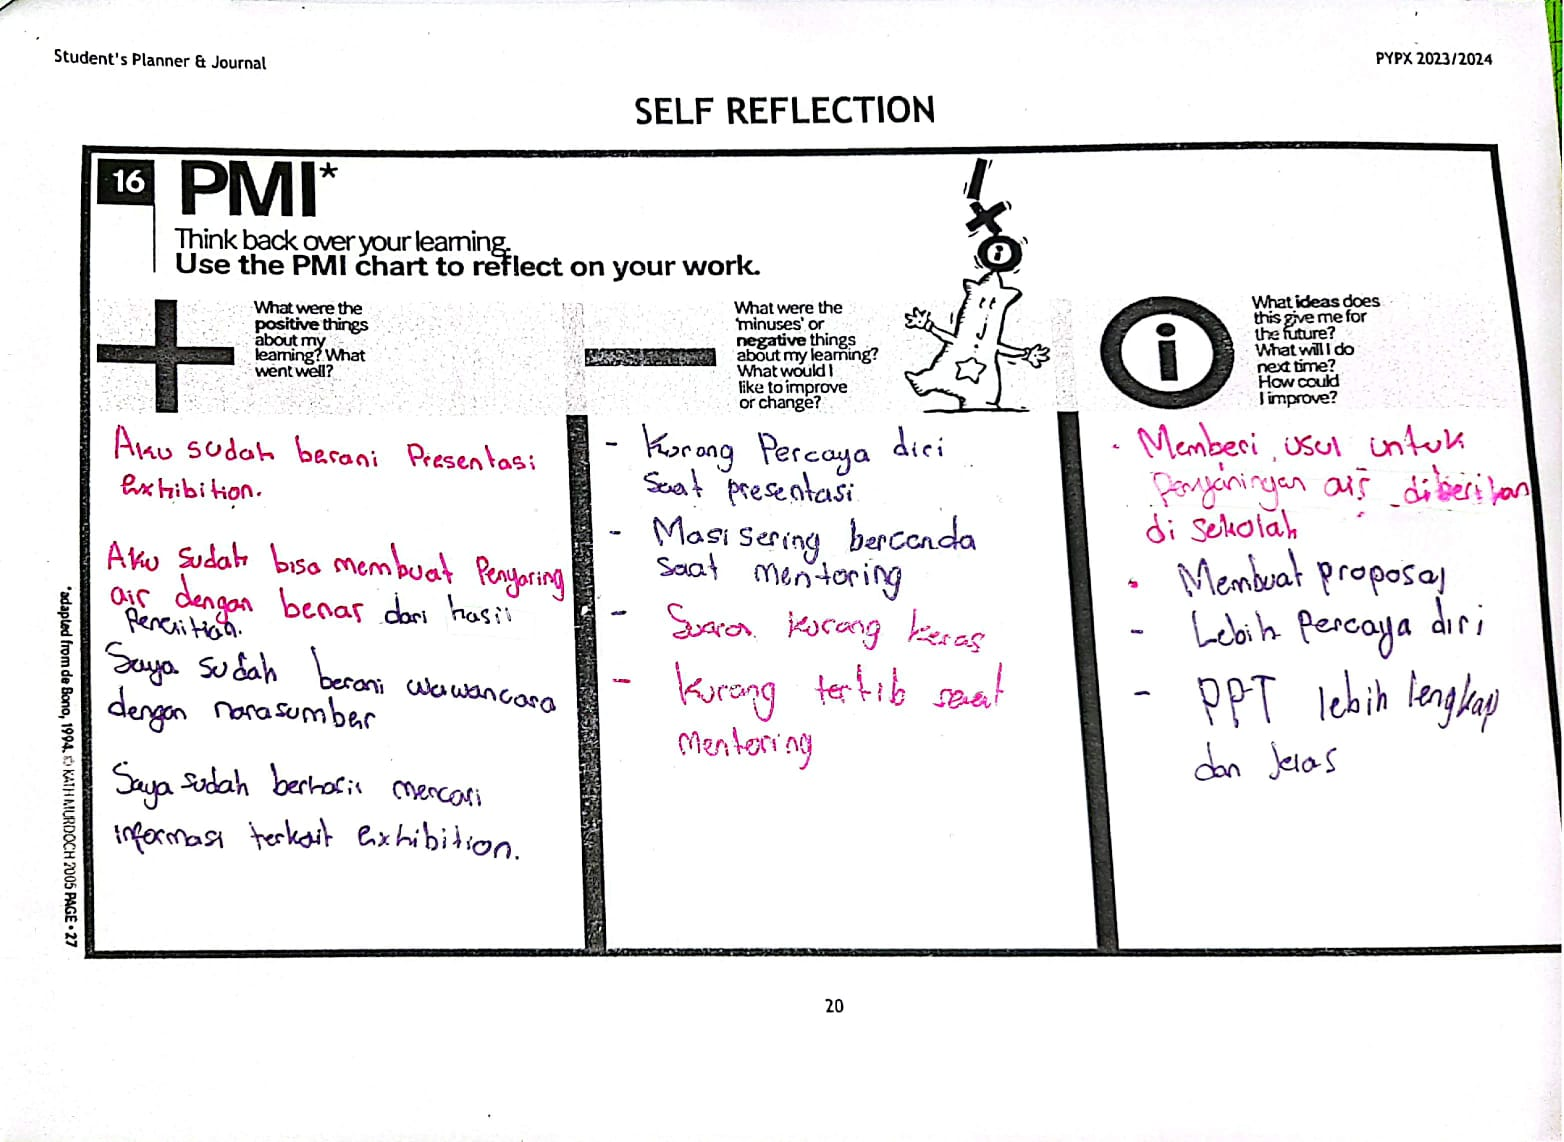 Student's Planner & Journal
PYPX 2023/2024
SELF REFLECTION
16
PMI*
Think back over your learning.
Use the PMI chart to reflect on your work.
What were the
positive things
about my
learning? What
went well?
Aku sudah berani Presentasi
Exhibition.
Aku sudah bisa membuat Penyaring
air dengan benar dari hasil
Penelitian.
Saya sudah berani wawancara
dengan narasumber
Saya sudah berhasil mencari
informasi terkait Exhibition.
What were the
'minuses' or
negative things
about my learning?
What would I
like to improve
or change?
- Kurang Percaya diri
saat presentasi
- Masi sering bercanda
saat mentoring
- Suara kurang keras
- Kurang tertib saat
Mentoring
i
What ideas does
this give me for
the future?
What will I do
next time?
How could
I improve?
• Memberi usul untuk
Penyaringan air diberikan
di sekolah
• Membuat proposal
- Lebih Percaya diri
- PPT lebih lengkap
dan Jelas
*adapted from de Bono, 1994. © KATH MURDOCH 2005 PAGE • 27
20